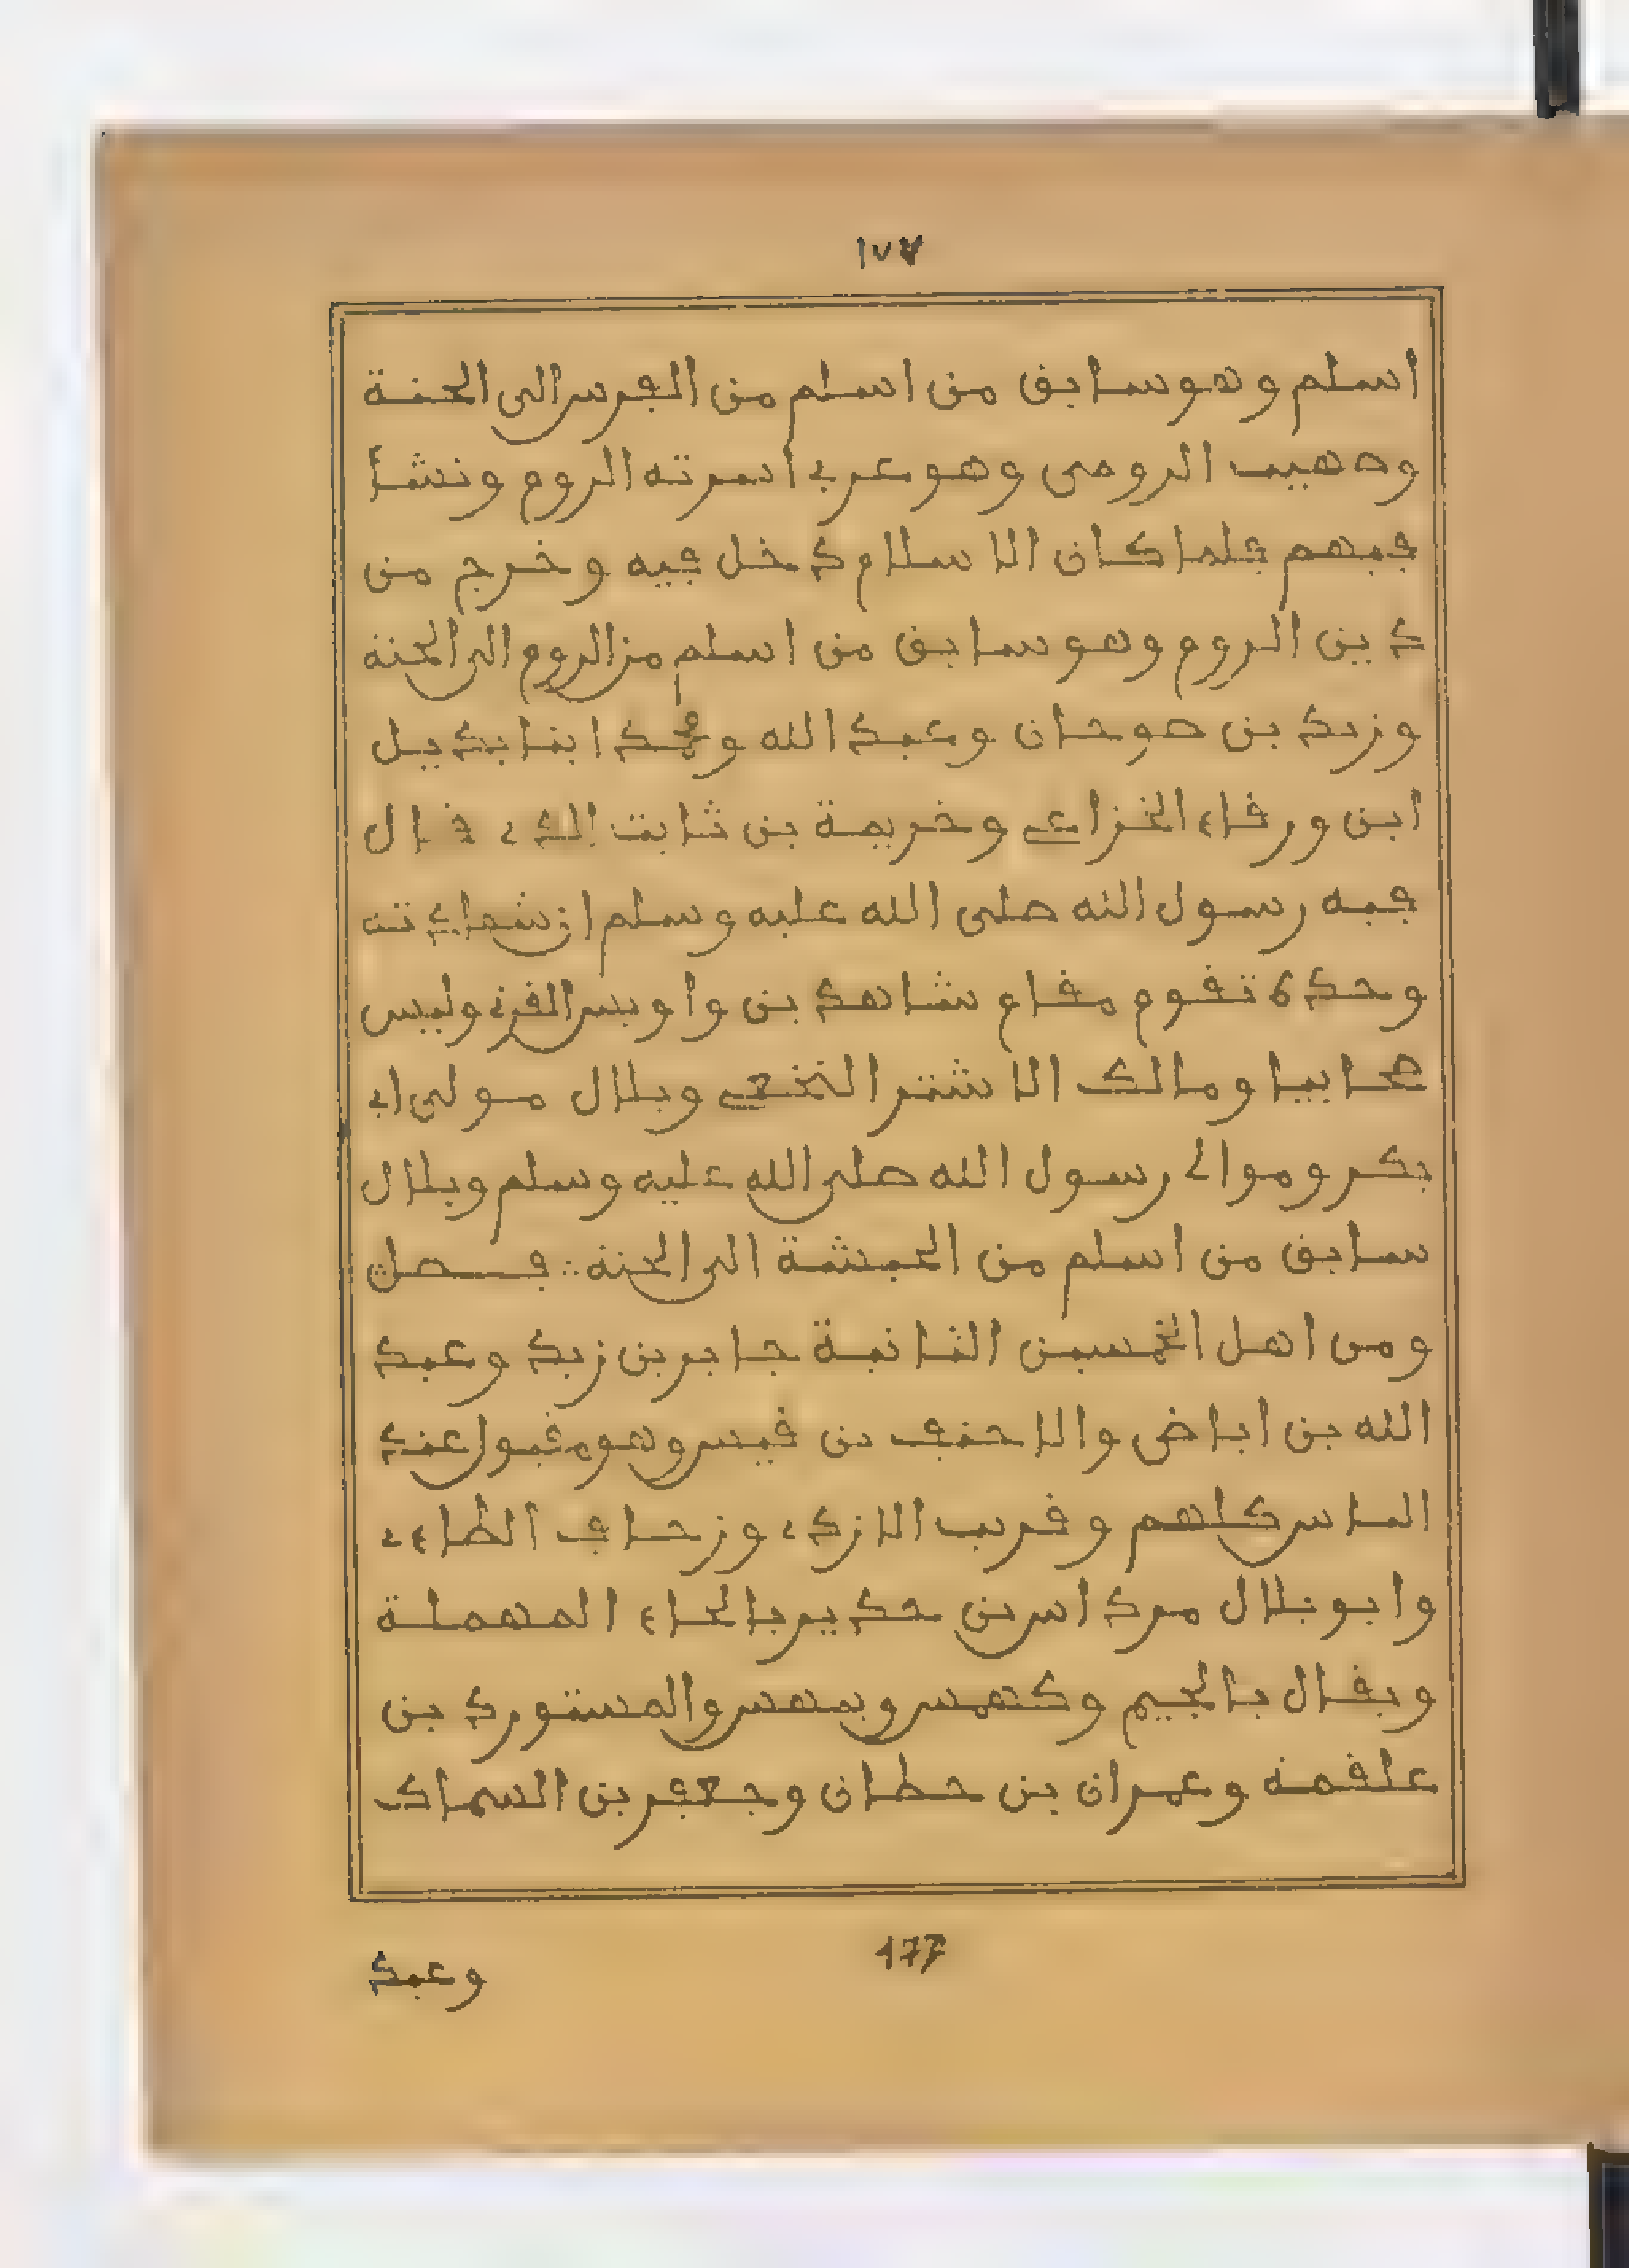 ١٧٧
اسلم وهو سابق من اسلم من الفرس الى الجنة
وصهيب الرومى وهو عربي اسرته الروم ونشأ
فيهم فلما كان الاسلام دخل فيه وخرج من
دين الروم وهو سابق من اسلم من الروم الى الجنة
وزيد بن صوحان وعبد الله ومحمد ابنا بديل
ابن ورقاء الخزاعي وخزيمة بن ثابت الذي قال
فيه رسول الله صلى الله عليه وسلم ان شهادته
وحده تقوم مقام شاهدين واويس القرني وليس
صحابيا ومالك الاشتر النخعي وبلال مولى ابي
بكر وموالي رسول الله صلى الله عليه وسلم وبلال
سابق من اسلم من الحبشة الى الجنة ∴ فصل
ومن اهل الخمسين الثانية جابر بن زيد وعبد
الله بن اباض والاحنف بن قيس وهو مقبول عند
الناس كلهم وقريب الازدي وزحاف الطاءي
وابو بلال مرداس بن حدير بالحاء المهملة
ويقال بالجيم وكهمس وبيهس والمستورد بن
علقمة وعمران بن حطان وجعفر بن السماك
177
وعبد